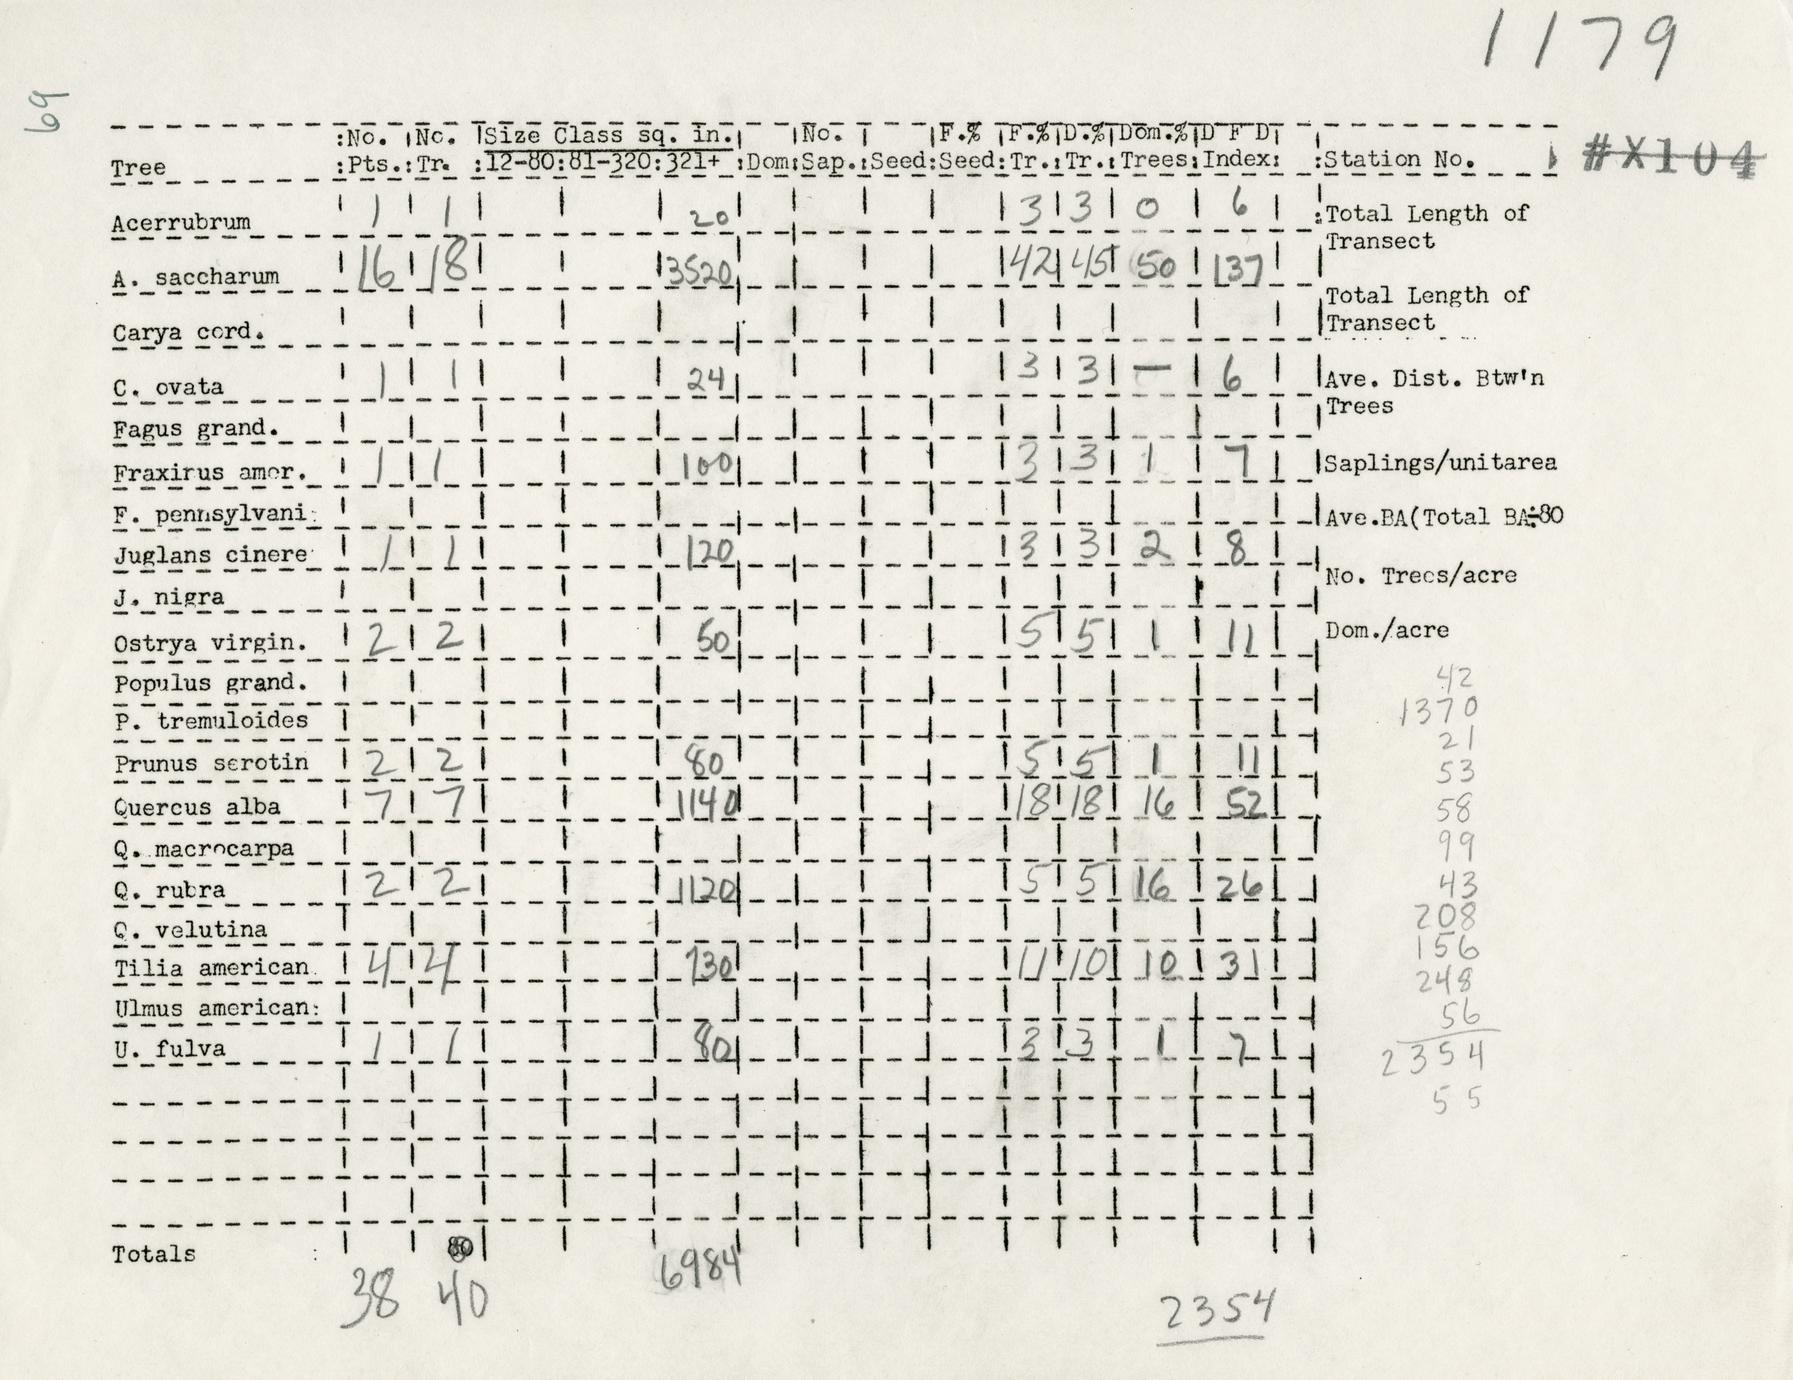 1179
69
:No. No. Size Class sq. in. No. F.% F.% D.% Dom.% D F D
Tree :Pts.: Tr. :12-80:81-320:321+ :Dom: Sap.: Seed: Seed: Tr.: Tr.: Trees: Index: :Station No. #X104
Acerrubrum 1 1 20 3 3 0 6 :Total Length of
Transect
A. saccharum 16 18 3520 42 45 50 137
Total Length of
Carya cord. Transect
C. ovata 1 1 24 3 3 — 6 Ave. Dist. Btw'n
Trees
Fagus grand.
Fraxinus amer. 1 1 100 3 3 1 7 Saplings/unitarea
F. pennsylvani: Ave.BA(Total BA÷80
Juglans cinere 1 1 120 3 3 2 8
No. Trees/acre
J. nigra
Ostrya virgin. 2 2 50 5 5 1 11 Dom./acre
Populus grand. 42
P. tremuloides 1370
21
Prunus serotin 2 2 80 5 5 1 11 53
Quercus alba 7 7 1140 18 18 16 52 58
Q. macrocarpa 99
Q. rubra 2 2 1120 5 5 16 26 43
Q. velutina 208
156
Tilia american 4 4 730 11 10 10 31 248
Ulmus american: 56
U. fulva 1 1 80 3 3 1 7 2354
55
Totals : 80
38 40 6984 2354